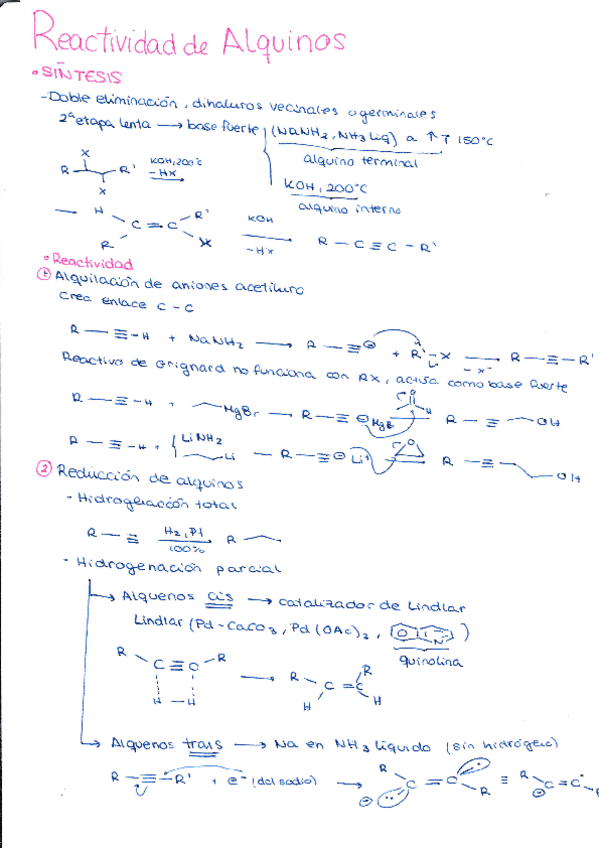 Reactividad de Alquinos
• SÍNTESIS
- Doble eliminación, dihaluros vecinales o geminales
2ª etapa lenta → base fuerte (NaNH2, NH3 liq) a ↑↑ 150°C
alquino terminal
KOH, 200°C
alquino interno
X
R R'
X
KOH, 200°C
- HX
→ H R'
C = C
R X
KOH
- HX
R - C ≡ C - R'
• Reactividad
① Alquilación de aniones acetiluro
Crea enlace C - C
R - ≡ - H + NaNH2 → R - ≡ ⊖ + R' - X → R - ≡ - R'
- X⁻
Reactivo de Grignard no funciona con RX, actúa como base fuerte
R - ≡ - H + MgBr → R - ≡ ⊖ MgB → R - ≡ OH
O
H
R - ≡ - H + LiNH2 Li - R - ≡ ⊖ Li⁺ → R - ≡ OH
O
② Reducción de alquinos
- Hidrogenación total
R - ≡ H2, Pt R
100%
- Hidrogenación parcial
→ Alquenos cis → catalizador de Lindlar
Lindlar (Pd - CaCO3, Pd(OAc)2, N )
quinolina
R - C ≡ C - R → R - C = C R
H - H H H
→ Alquenos trans → Na en NH3 líquido (sin hidrógeno)
R - ≡ - R' + e⁻ (del sodio) → R C = C R ≡ R C = C R
⊖ ⊖